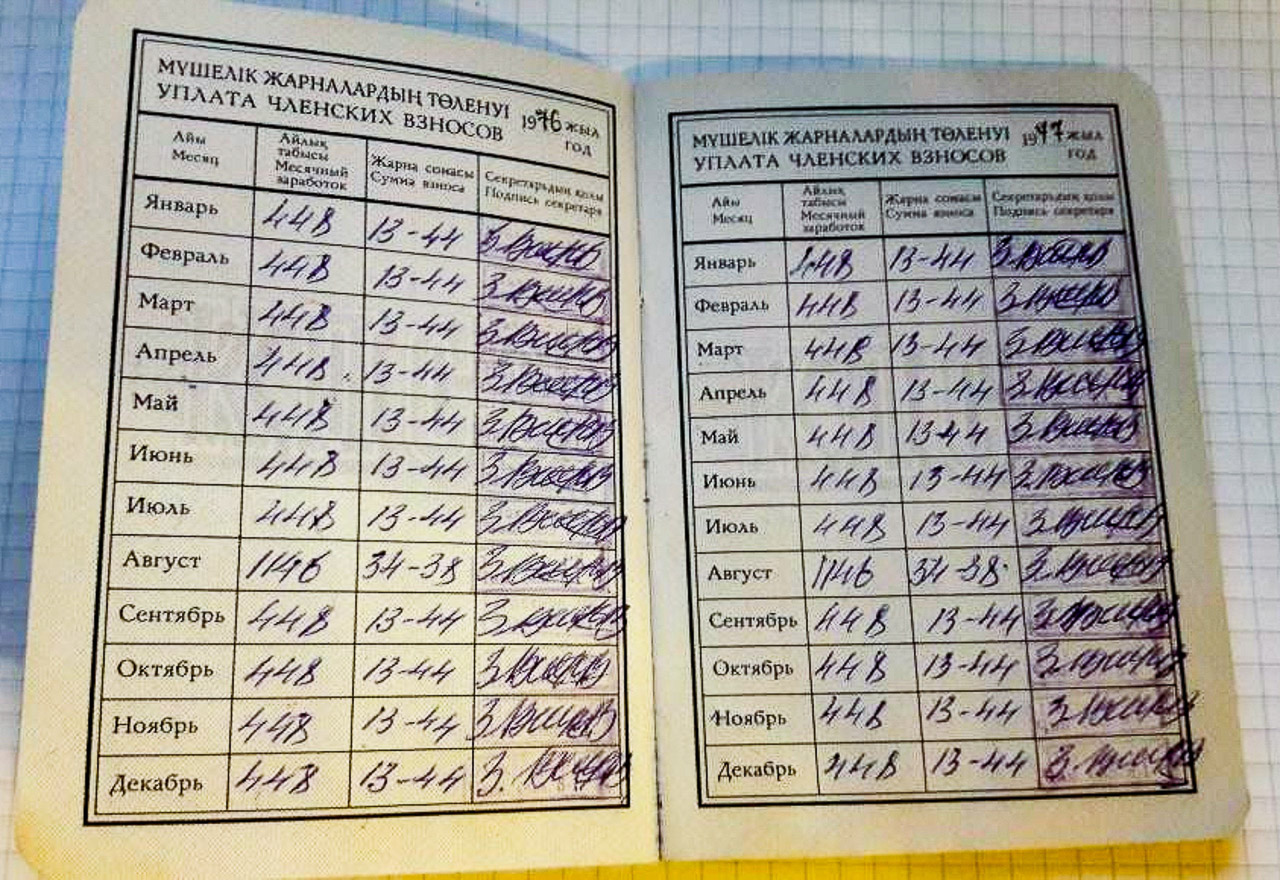 МҮШЕЛІК ЖАРНАЛАРДЫҢ ТӨЛЕНУІ 1976 жыл
УПЛАТА ЧЛЕНСКИХ ВЗНОСОВ год
Айы Айлық табысы Жарна сомасы Секретарьдың қолы
Месяц Месячный заработок Сумма взноса Подпись секретаря
Январь 448 13-44
Февраль 448 13-44
Март 448 13-44
Апрель 448 13-44
Май 448 13-44
Июнь 448 13-44
Июль 448 13-44
Август 1146 34-38
Сентябрь 448 13-44
Октябрь 448 13-44
Ноябрь 448 13-44
Декабрь 448 13-44
МҮШЕЛІК ЖАРНАЛАРДЫҢ ТӨЛЕНУІ 1977 жыл
УПЛАТА ЧЛЕНСКИХ ВЗНОСОВ год
Айы Айлық табысы Жарна сомасы Секретарьдың қолы
Месяц Месячный заработок Сумма взноса Подпись секретаря
Январь 448 13-44
Февраль 448 13-44
Март 448 13-44
Апрель 448 13-44
Май 448 13-44
Июнь 448 13-44
Июль 448 13-44
Август 1146 34-38
Сентябрь 448 13-44
Октябрь 448 13-44
Ноябрь 448 13-44
Декабрь 448 13-44